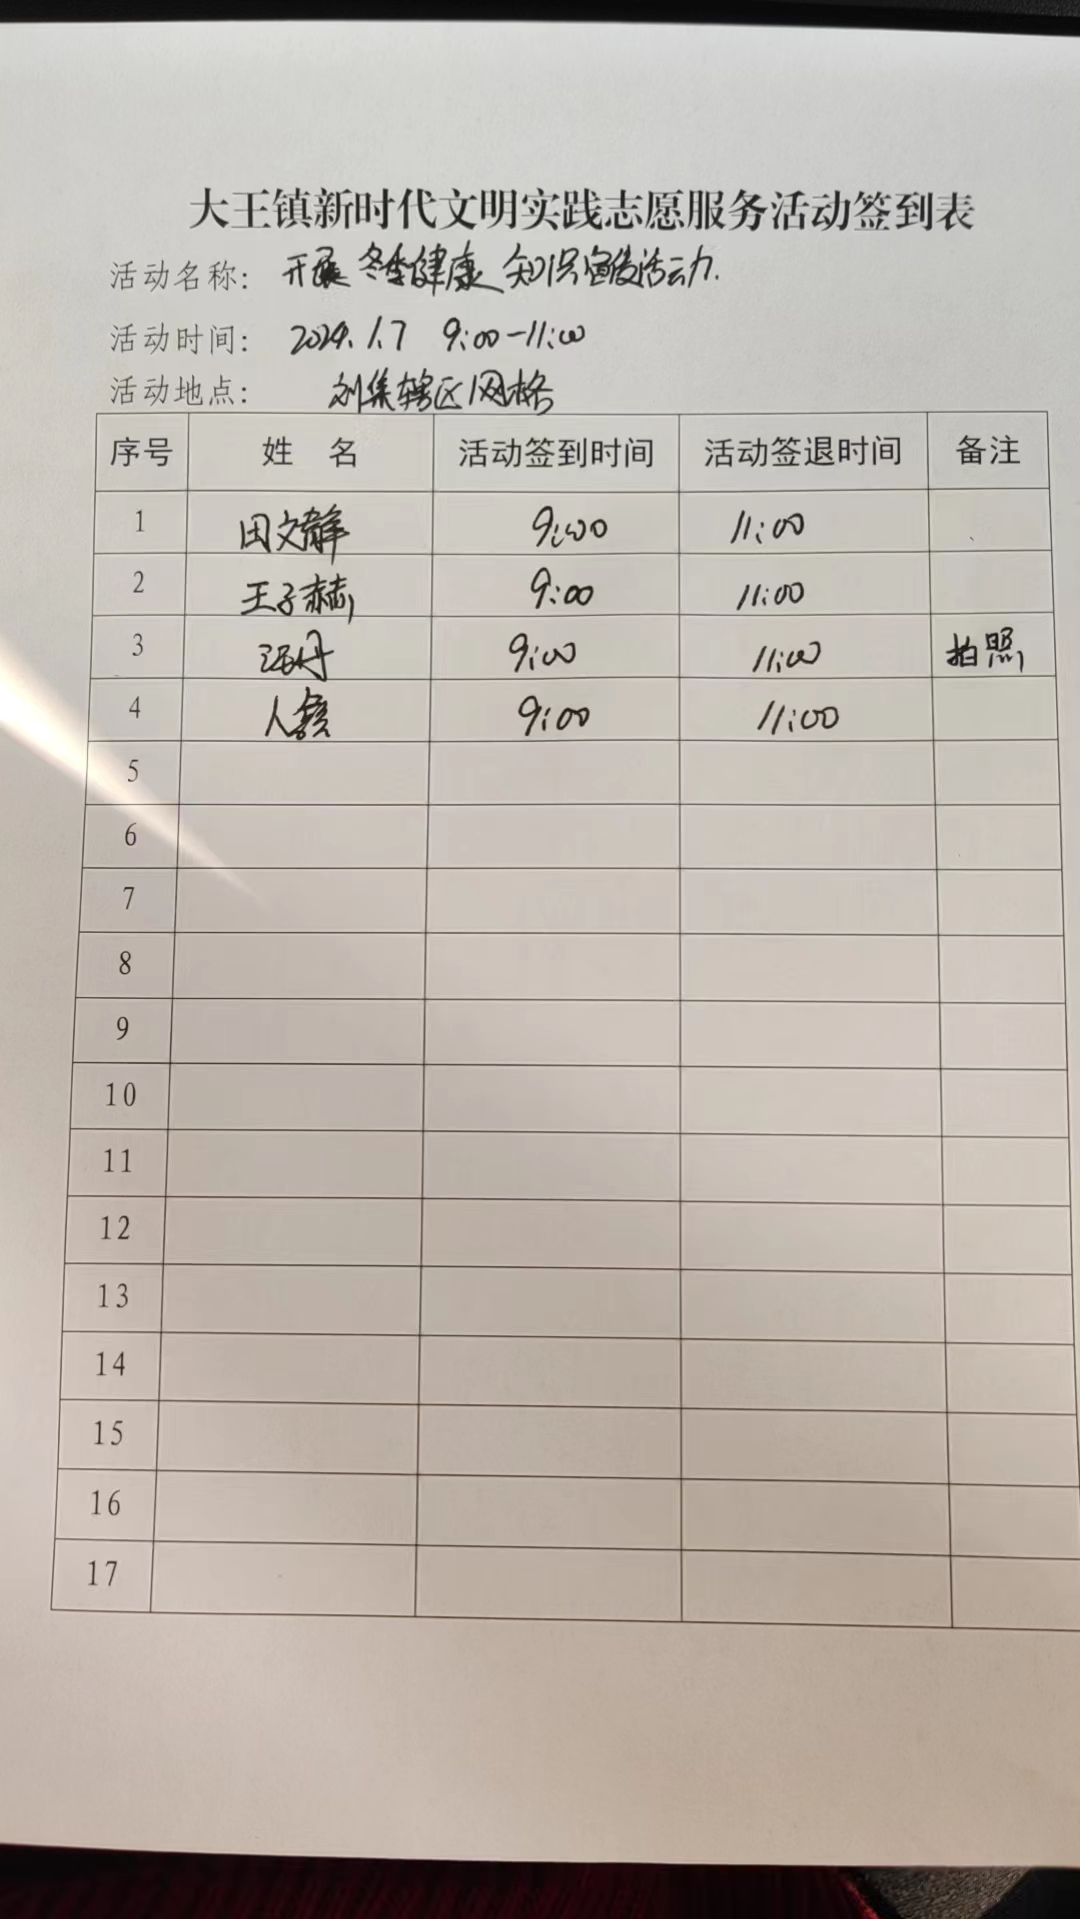 大王镇新时代文明实践志愿服务活动签到表
活动名称: 开展冬季健康知识宣传活动.
活动时间: 2024.1.7 9:00-11:00
活动地点: 刘集辖区网格
序号 姓 名 活动签到时间 活动签退时间 备注
1 田文静 9:00 11:00
2 王子赫 9:00 11:00
3 9:00 11:00 拍照
4 9:00 11:00
5
6
7
8
9
10
11
12
13
14
15
16
17